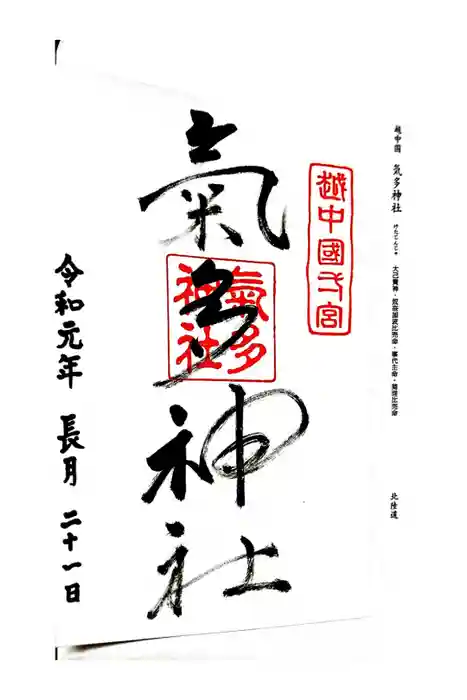 越中國 氣多神社 けたじんじゃ 大己貴神・奴奈加波比売命・事代主命・菊理比売命
北陸道
越中國一宮
氣多神社
氣多
神社
令和元年 長月 二十一日